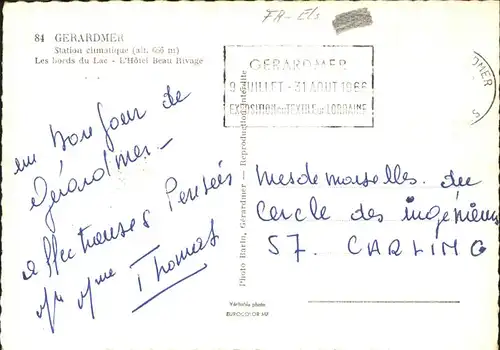 84 GERARDMER
Station climatique (alt. 666 m)
Les bords du Lac - L'Hôtel Beau Rivage
FR - Els
GERARDMER
9 JUILLET - 31 AOUT 1966
EXPOSITION du TEXTILE de LORRAINE
un bonjour de
Gérardmer -
affectueuses Pensées
Thomas
Mesdemoiselles du
Cercle des ingénieurs
57. CARLING
Photo Harin, Gérardmer - Reproduction interdite
Véritable photo
EUROCOLOR